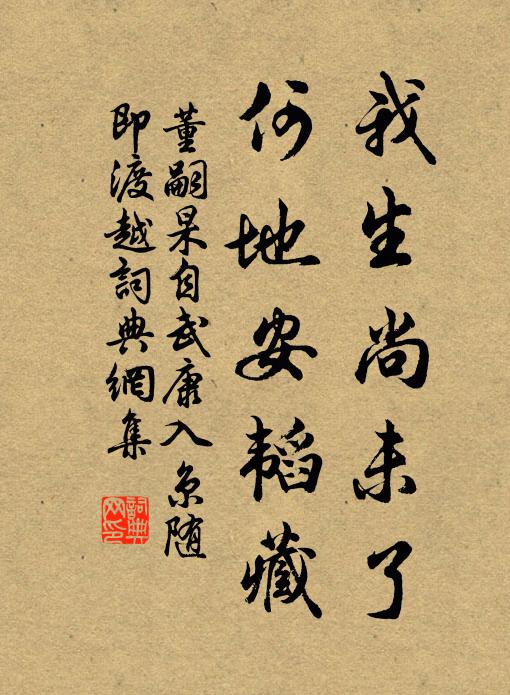 我生尚未了
何地安韬藏
董嗣杲自武康入京随
即渡越詞典網集
詞典
网印